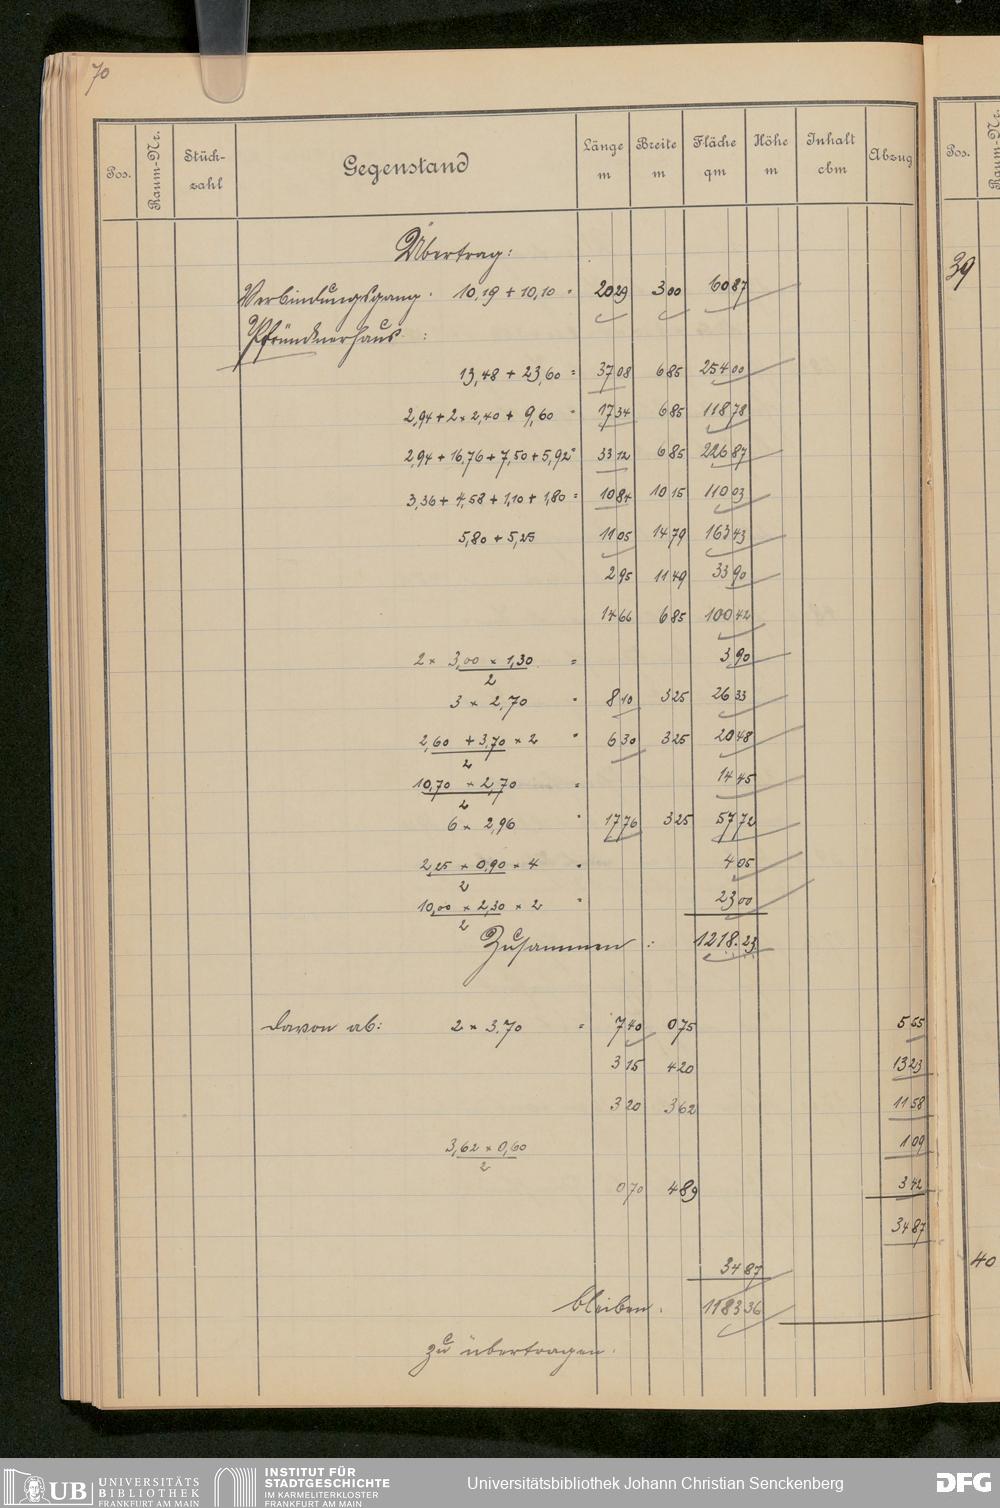 70
Pos. Raum-Nr. Stück-zahl Gegenstand Länge m Breite m Fläche qm Höhe m Inhalt cbm Abzug
Pos. Raum-Nr.
Übertrag:
Verbindungsgang. 10,19 + 10,10 = 20 29 3 00 60 87
Pfründnerhaus :
13,48 + 23,60 = 37 08 6 85 254 00
2,94 + 2 × 2,40 + 9,60 = 17 34 6 85 118 78
2,94 + 16,76 + 7,50 + 5,92 = 33 12 6 85 226 87
3,36 + 4,58 + 1,10 + 1,80 = 10 84 10 15 110 03
5,80 + 5,25 11 05 14 79 163 43
2 95 11 49 33 90
14 66 6 85 100 42
2 × 3,00 × 1,30 = 3 90
2
3 × 2,70 = 8 10 3 25 26 33
2,60 + 3,70 × 2 = 6 30 3 25 20 48
2
10,70 × 2,70 = 14 45
2
6 × 2,96 = 17 76 3 25 57 72
2,25 × 0,90 × 4 = 4 05
2
10,00 × 2,30 × 2 = 23 00
2
Zusammen : 1218.23
davon ab: 2 × 3.70 = 7 40 0 75 5 55
3 15 4 20 13 23
3 20 3 62 11 58
3,62 × 0,60 1 09
2
0 70 4 89 3 42
34 87
34 87
bleiben. 1183 36
zu übertragen.
39
40
UB UNIVERSITÄTS BIBLIOTHEK FRANKFURT AM MAIN
INSTITUT FÜR STADTGESCHICHTE IM KARMELITERKLOSTER FRANKFURT AM MAIN
Universitätsbibliothek Johann Christian Senckenberg
DFG